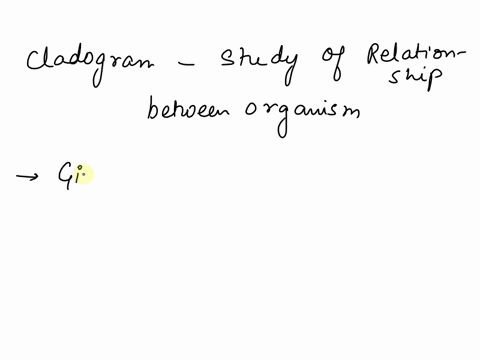 Cladogram - Study of Relation-
ship
between organism
→ Gi